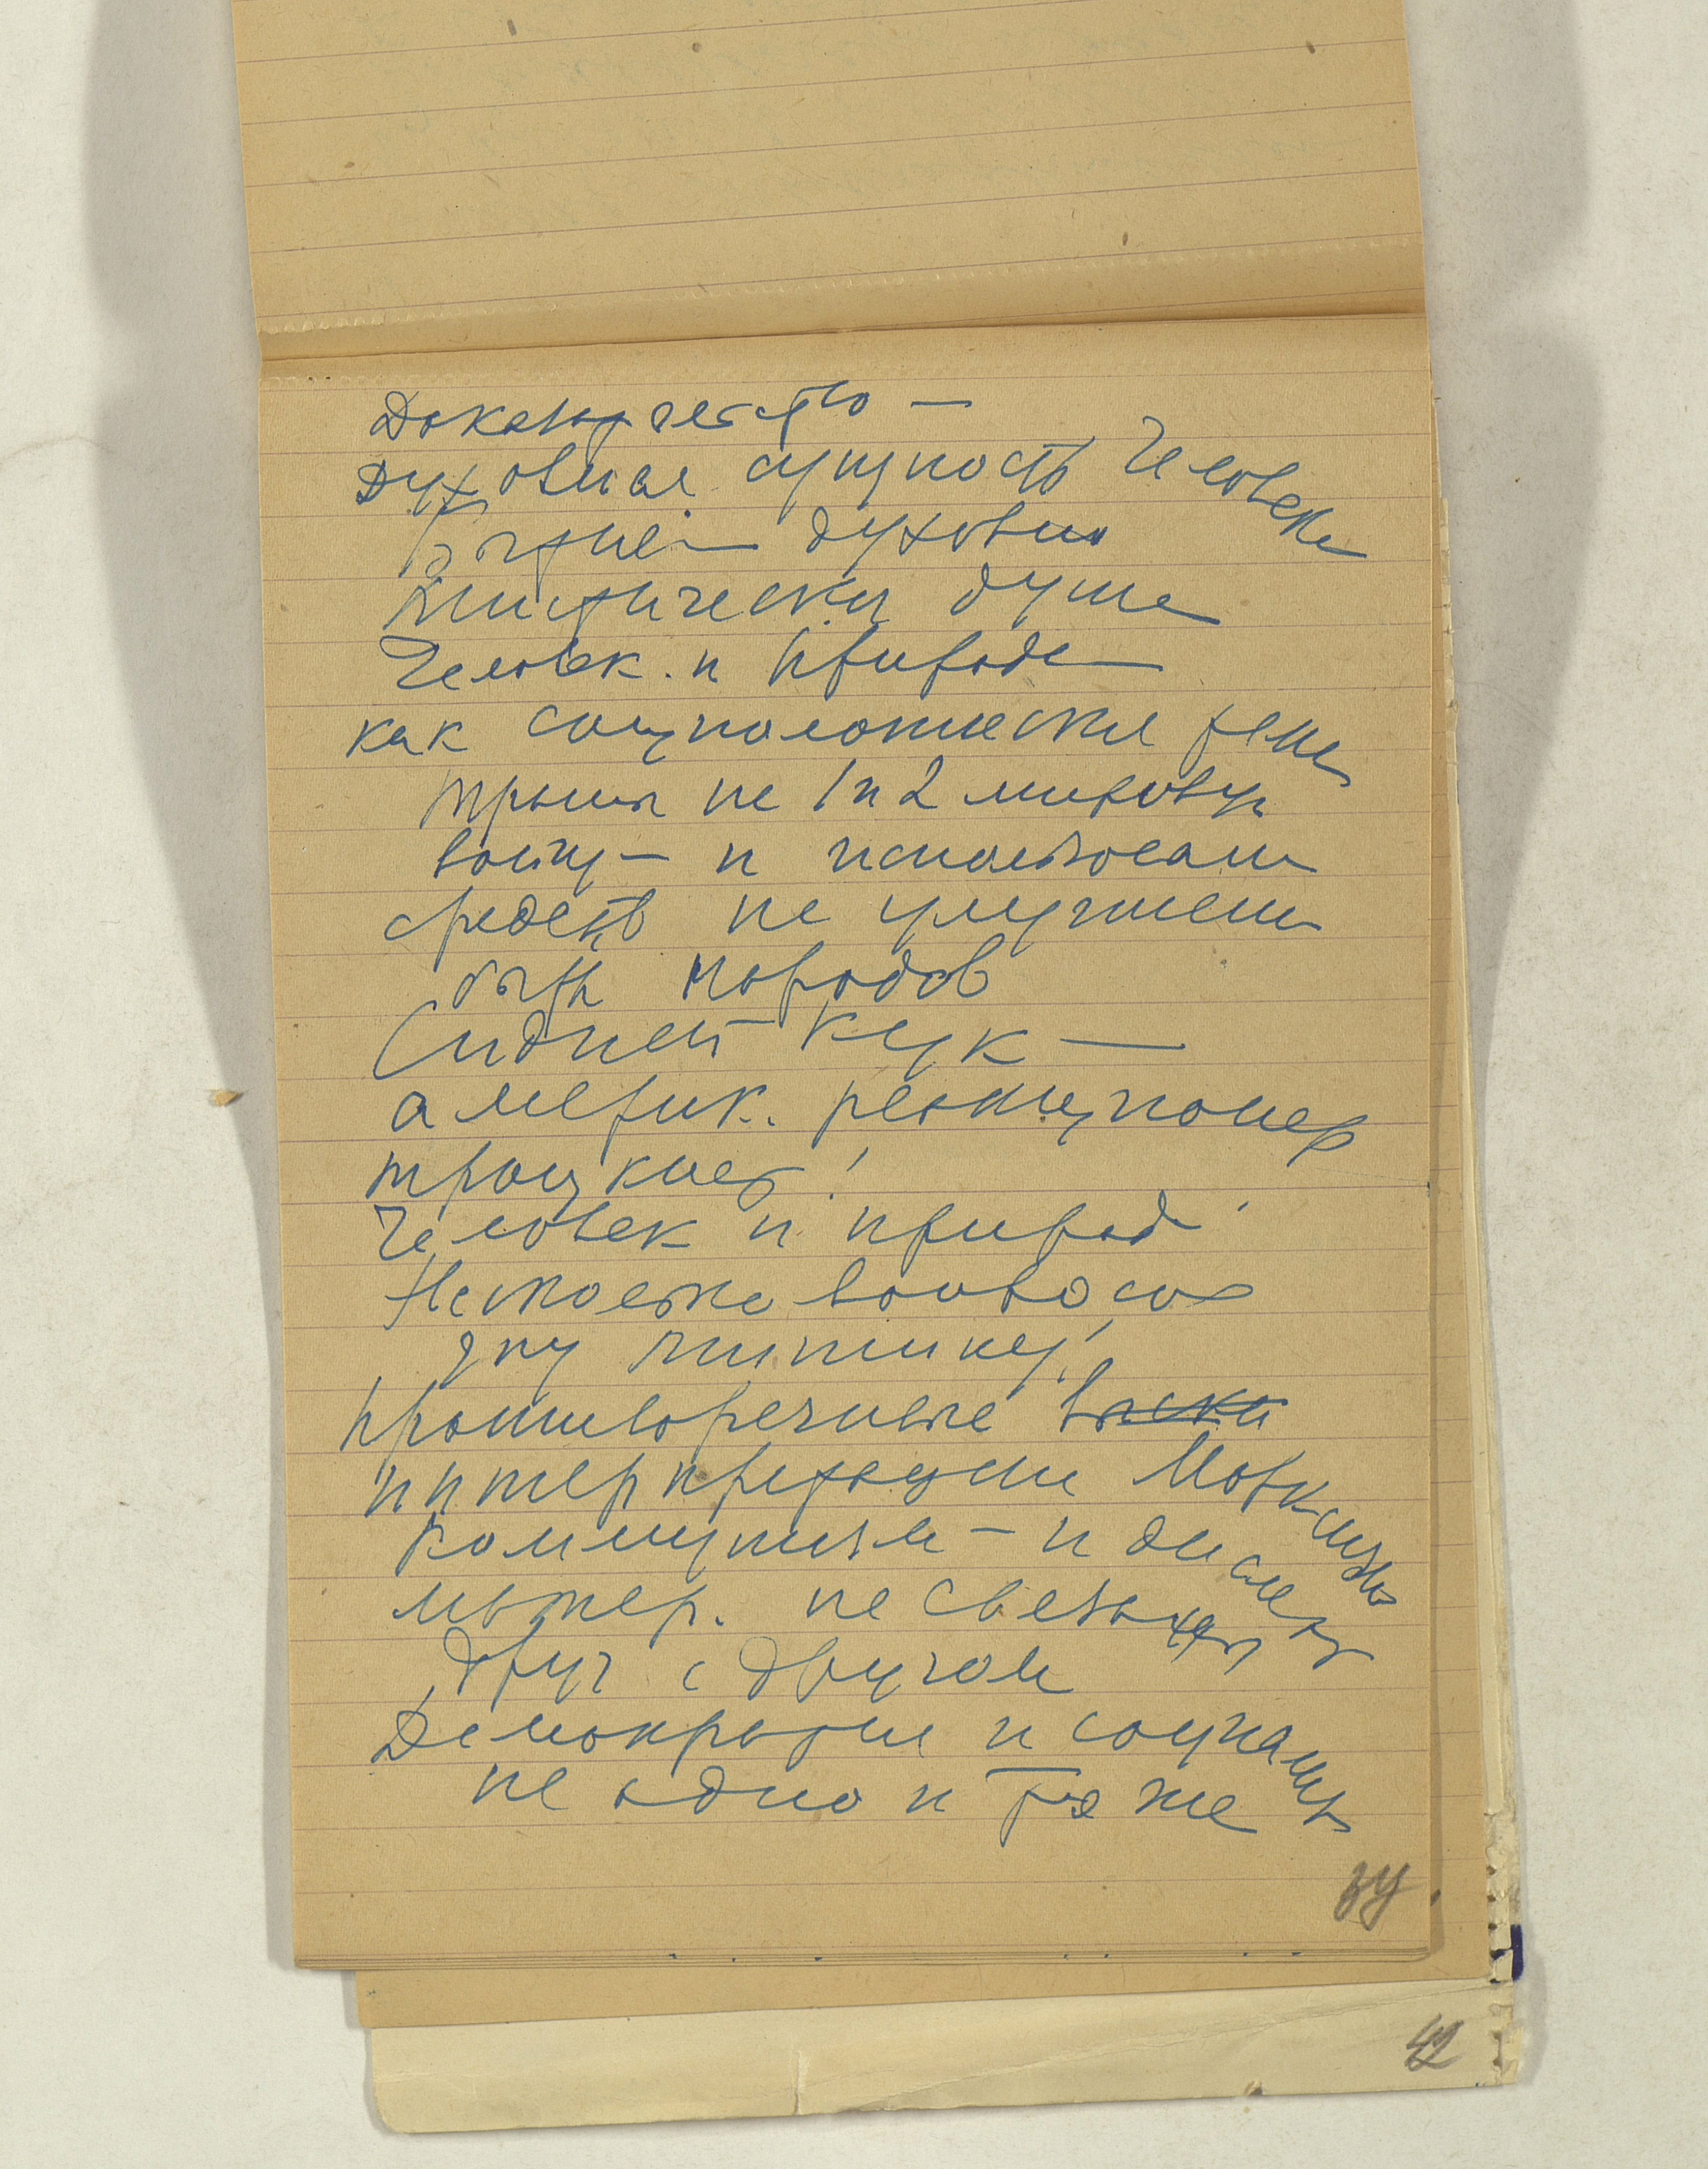 Доказательство —
Духовная сущность Человека
Бытие — духовно
Мистическая душа
Человек. и природа
как социологическая тема
траты на 1 и 2 мировую
войну — и использован
средств на улучшени
быта народов
Сидней Хук —
америк. реакционер
троцкист!
Человек и природа
Несколько вопросов
эту мистику!
противоречивые выска
интерпретации Марксизма
Коммунизм — и диалект
матер. не связаны
друг с другом
Демократия и социализм
не одно и то же
42